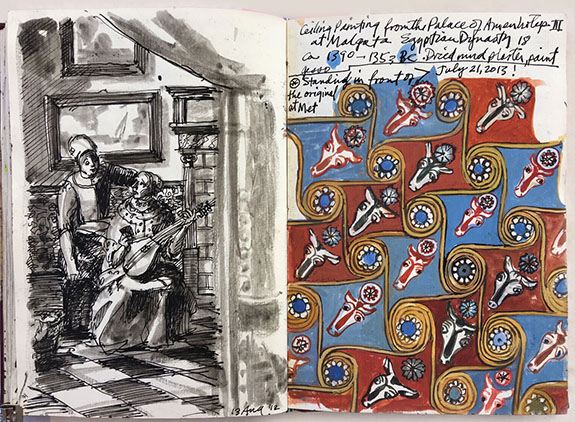 Ceiling Painting from the Palace of Amenhotep III
at Malqata Egyptian Dynasty 18
ca 1390-1353 BC. Dried mud plaster, paint
⊛ Standing in front of July 21, 2015!
the original
at Met
19 Aug '12